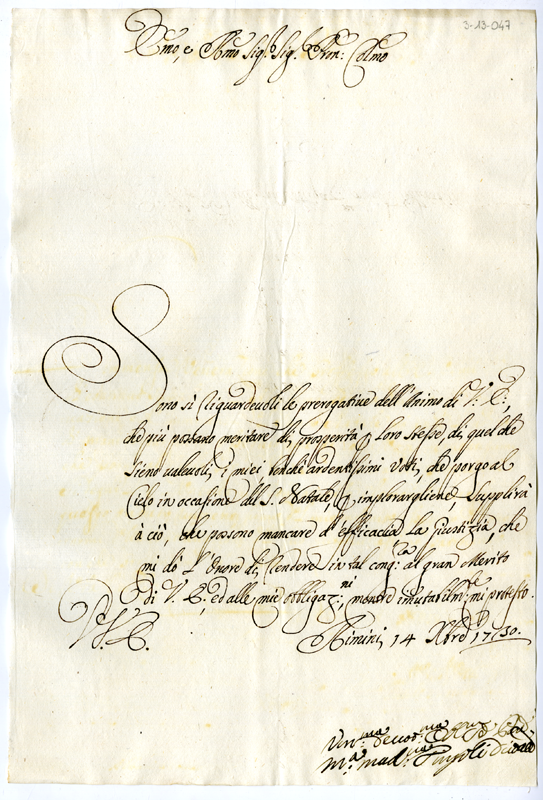 3-13-047
Emo, e Rmo Sig.r Sig. Pron: Colmo
Sono sì riguardevoli le prerogative dell'Animo di V. E.,
che più possano meritare di prosperità p loro stesse, di quel che
sieno valevoli i miei benche ardentissimi Voti, che porgo al
Cielo in occasione del S. Natale, p implorargliene, Supplirà
à ciò, che possono mancare d'efficacia La Giustizia, che
mi dò L'Onore di rendere in tal cong.ra al gran Merito
di V. E., ed alle mie obbligaz.ni, mentre imutabilm.te mi protesto.
V. E.
Rimini, 14 Xbre 1730.